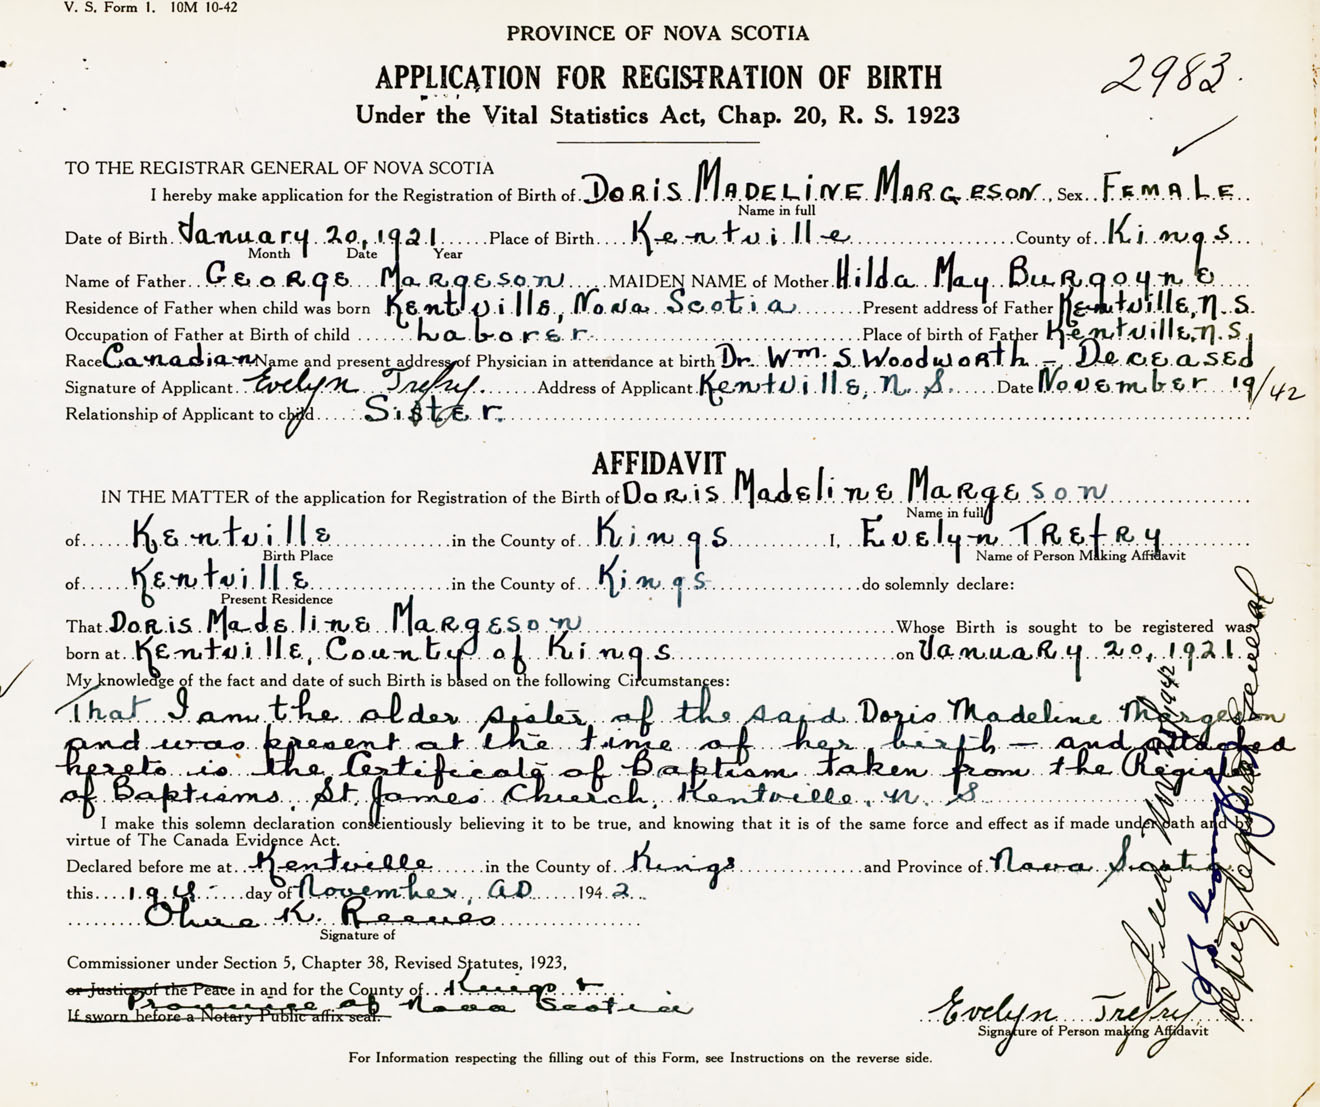 V. S. Form 1. 10M 10-42
PROVINCE OF NOVA SCOTIA
APPLICATION FOR REGISTRATION OF BIRTH
2983.
Under the Vital Statistics Act, Chap. 20, R. S. 1923
TO THE REGISTRAR GENERAL OF NOVA SCOTIA
I hereby make application for the Registration of Birth of Doris Madeline Margeson, Sex Female
Name in full
Date of Birth January 20, 1921 Place of Birth Kentville County of Kings
Month Date Year
Name of Father George Margeson MAIDEN NAME of Mother Hilda May Burgoyne
Residence of Father when child was born Kentville, Nova Scotia Present address of Father Kentville, N.S.
Occupation of Father at Birth of child Laborer Place of birth of Father Kentville, N.S.
Race Canadian Name and present address of Physician in attendance at birth Dr. Wm. S. Woodworth - Deceased
Signature of Applicant Evelyn Trefry. Address of Applicant Kentville, N. S. Date November 19/42
Relationship of Applicant to child Sister
AFFIDAVIT
IN THE MATTER of the application for Registration of the Birth of Doris Madeline Margeson
Name in full
of Kentville in the County of Kings I, Evelyn Trefry
Birth Place Name of Person Making Affidavit
of Kentville in the County of Kings do solemnly declare:
Present Residence
That Doris Madeline Margeson Whose Birth is sought to be registered was
born at Kentville, County of Kings on January 20, 1921
My knowledge of the fact and date of such Birth is based on the following Circumstances:
That I am the older sister of the said Doris Madeline Margeson
and was present at the time of her birth — and attached
hereto is the Certificate of Baptism taken from the Register
of Baptisms, St. James Church, Kentville, N. S.
I make this solemn declaration conscientiously believing it to be true, and knowing that it is of the same force and effect as if made under oath and by
virtue of The Canada Evidence Act.
Declared before me at Kentville in the County of Kings and Province of Nova Scotia
this 19th day of November, AD 1942.
Olive K. Reeves
Signature of
Commissioner under Section 5, Chapter 38, Revised Statutes, 1923,
or Justice of the Peace in and for the County of Kings &
Province of Nova Scotia
If sworn before a Notary Public affix seal.
Evelyn Trefry
Signature of Person making Affidavit
For Information respecting the filling out of this Form, see Instructions on the reverse side.
Filed 1942
Deputy Registrar General